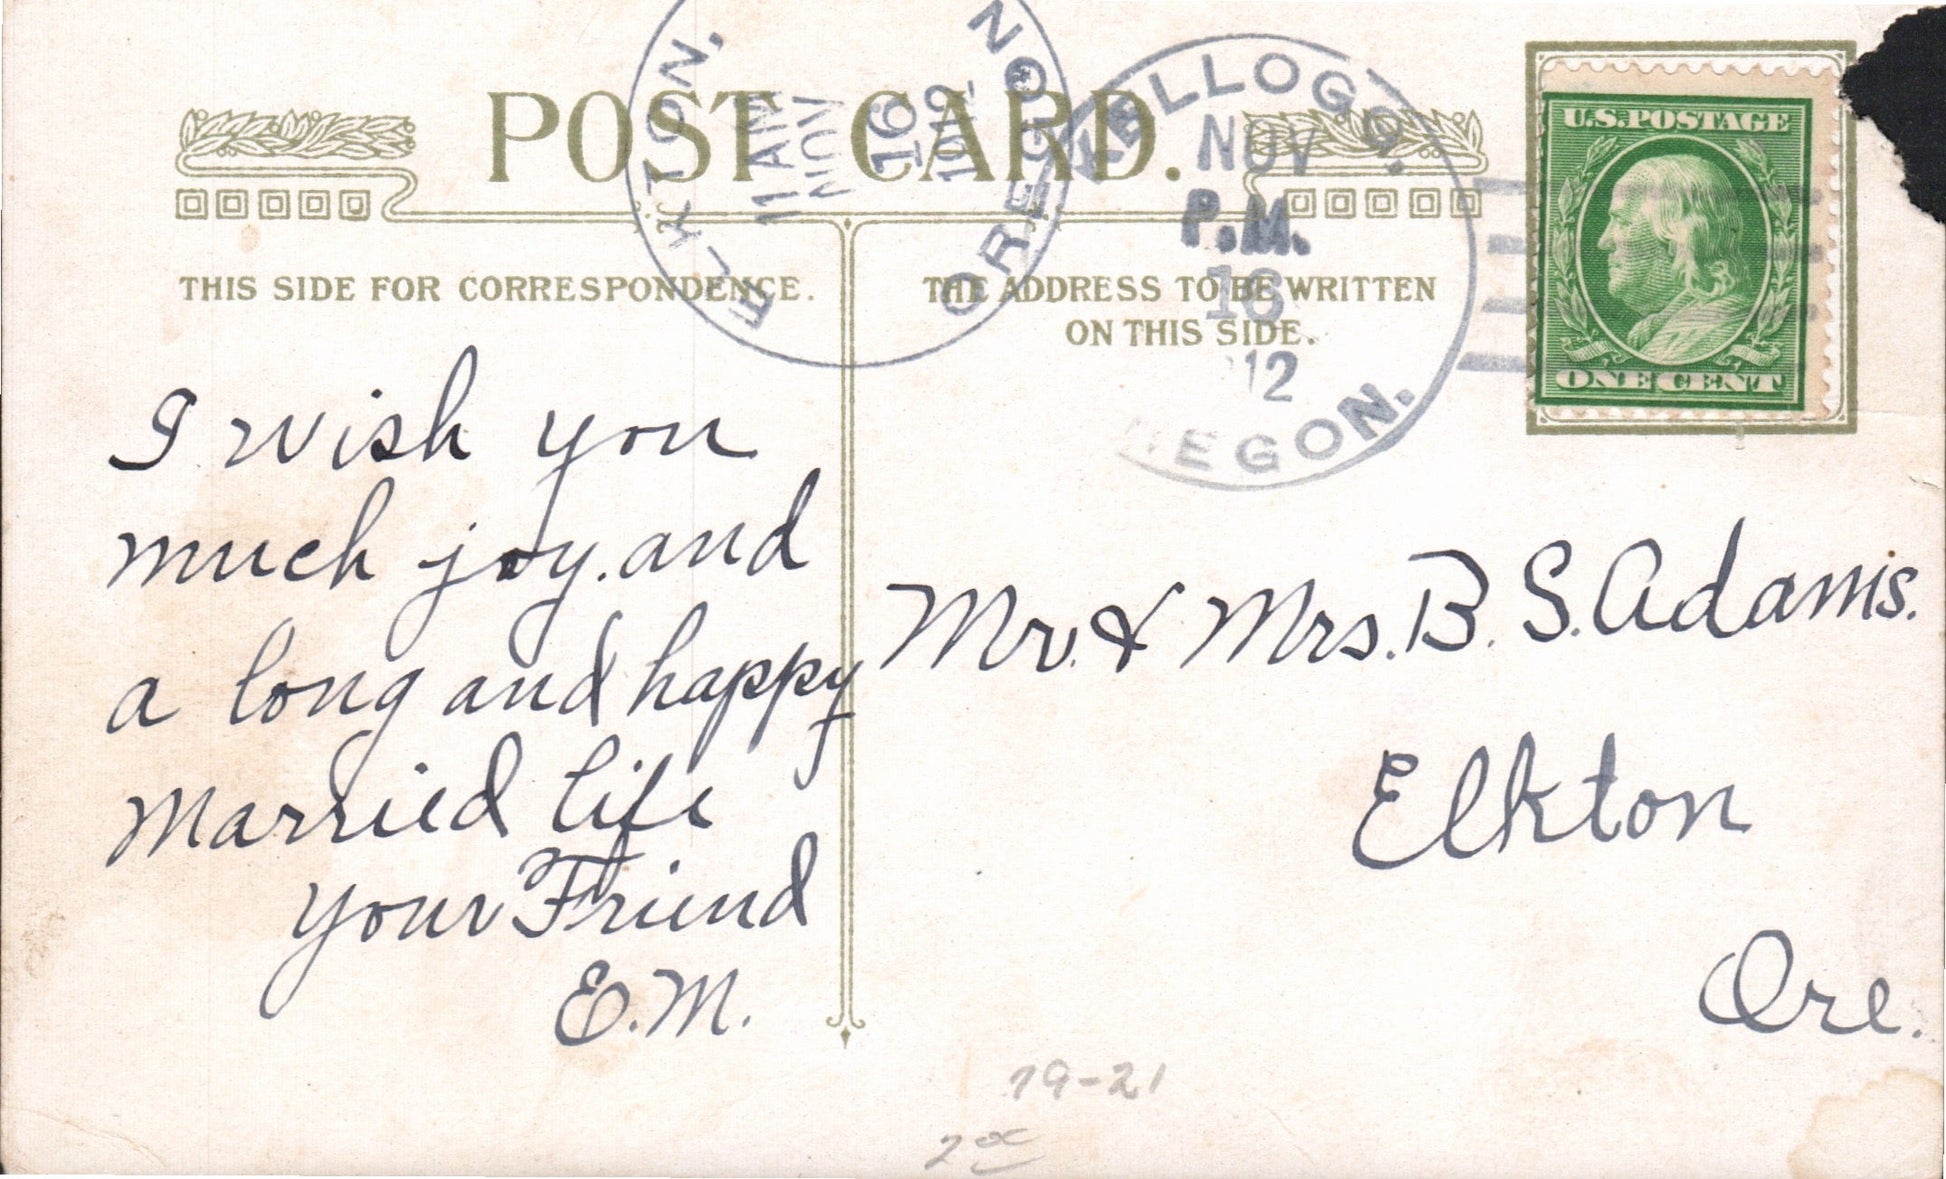 POST CARD.
THIS SIDE FOR CORRESPONDENCE.
THE ADDRESS TO BE WRITTEN
ON THIS SIDE.
ELKTON,
11 AM
NOV
16
1912
OREGON
KELLOGG.
NOV
P.M.
16
'12
REGON.
U.S. POSTAGE
ONE CENT
I wish you
much joy. and
a long and happy
Married life
your Friend
E.M.
Mr. & Mrs. B. S. Adams.
Elkton
Ore.
19-21